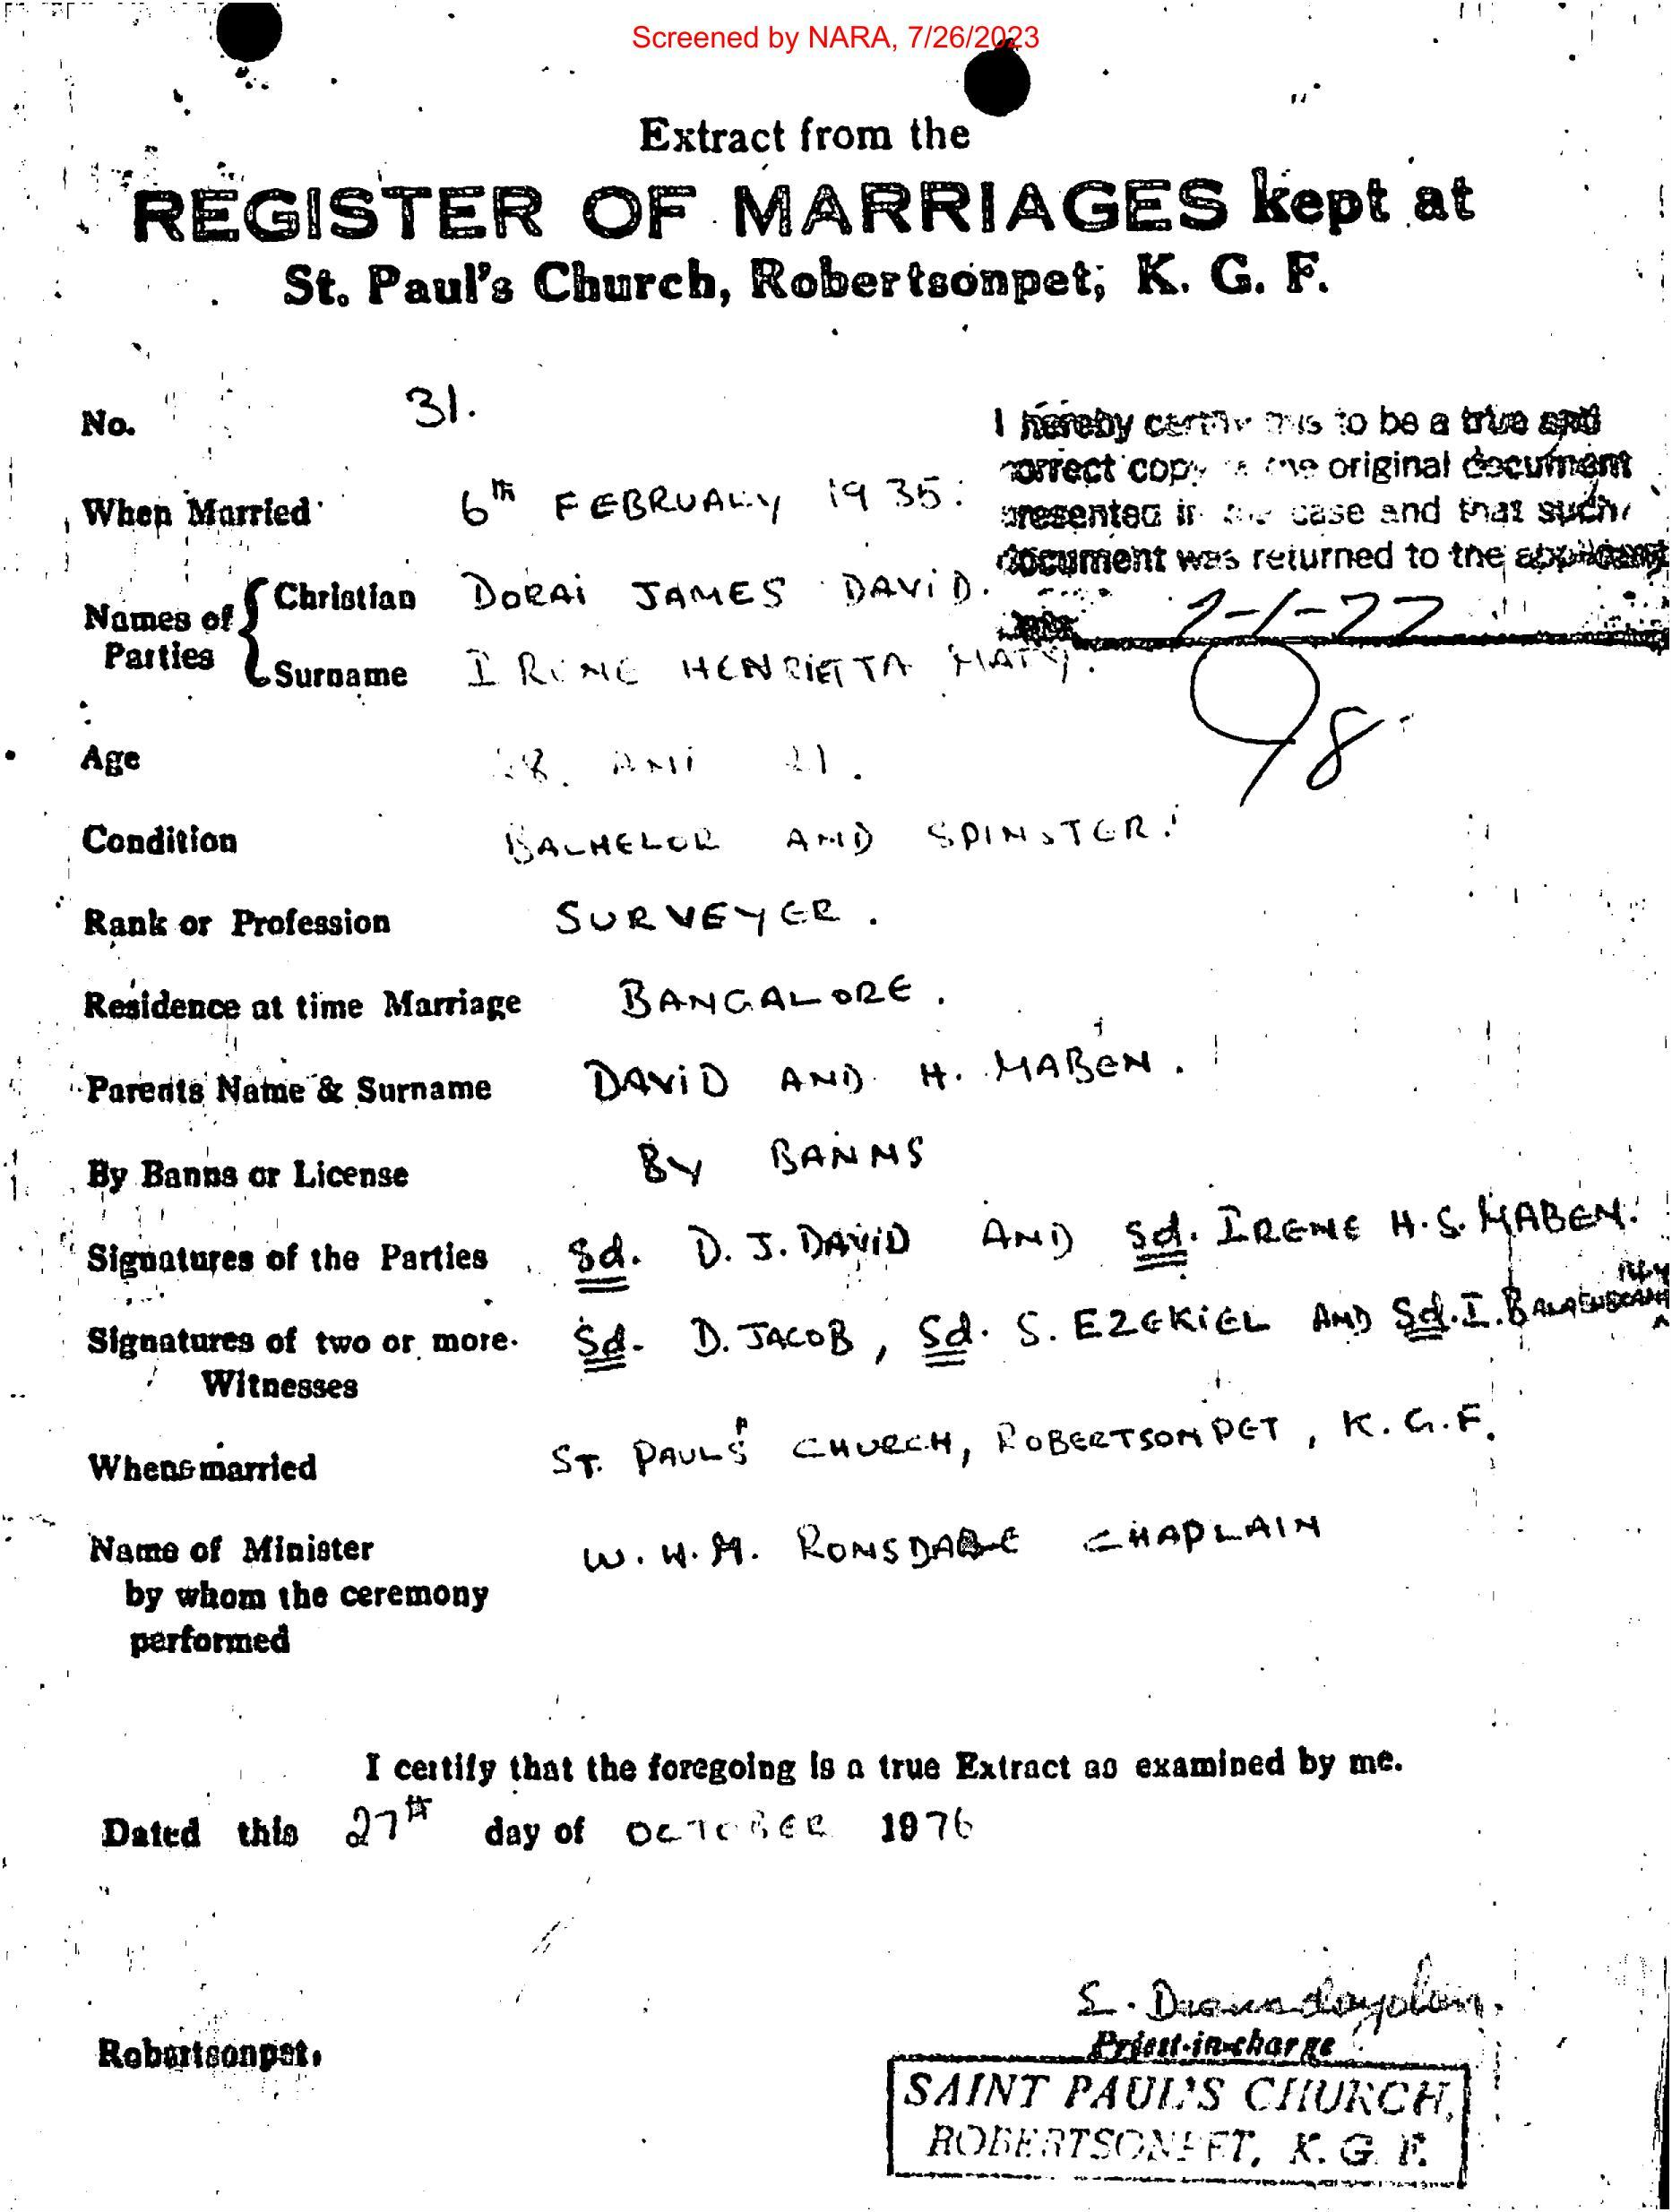 Screened by NARA, 7/26/2023
Extract from the
REGISTER OF MARRIAGES kept at
St. Paul's Church, Robertsonpet, K. G. F.
No. 31.
I hereby certify this to be a true and
correct copy of the original document
presented in case and that such
document was returned to the applicant
When Married 6th FEBRUARY 1935.
Names of Parties
Christian DORAI JAMES DAVID.
Surname IRENE HENRIETTA MATY.
Age 28. 21.
Condition BACHELOR AND SPINSTER.
Rank or Profession SURVEYER.
Residence at time Marriage BANGALORE.
Parents Name & Surname DAVID AND H. MABEN.
By Banns or License BY BANNS
Signatures of the Parties Sd. D. J. DAVID AND Sd. IRENE H. S. MABEN.
Signatures of two or more Sd. D. JACOB, Sd. S. EZEKIEL AND Sd. I.
Witnesses
When married ST. PAUL'S CHURCH, ROBERTSONPET, K. G. F.
Name of Minister W. H. M. CHAPLAIN
by whom the ceremony
performed
I certify that the foregoing is a true Extract as examined by me.
Dated this 27th day of OCTOBER 1976
Priest-in-charge
Robertsonpet.
SAINT PAUL'S CHURCH,
ROBERTSONPET, K. G. F.